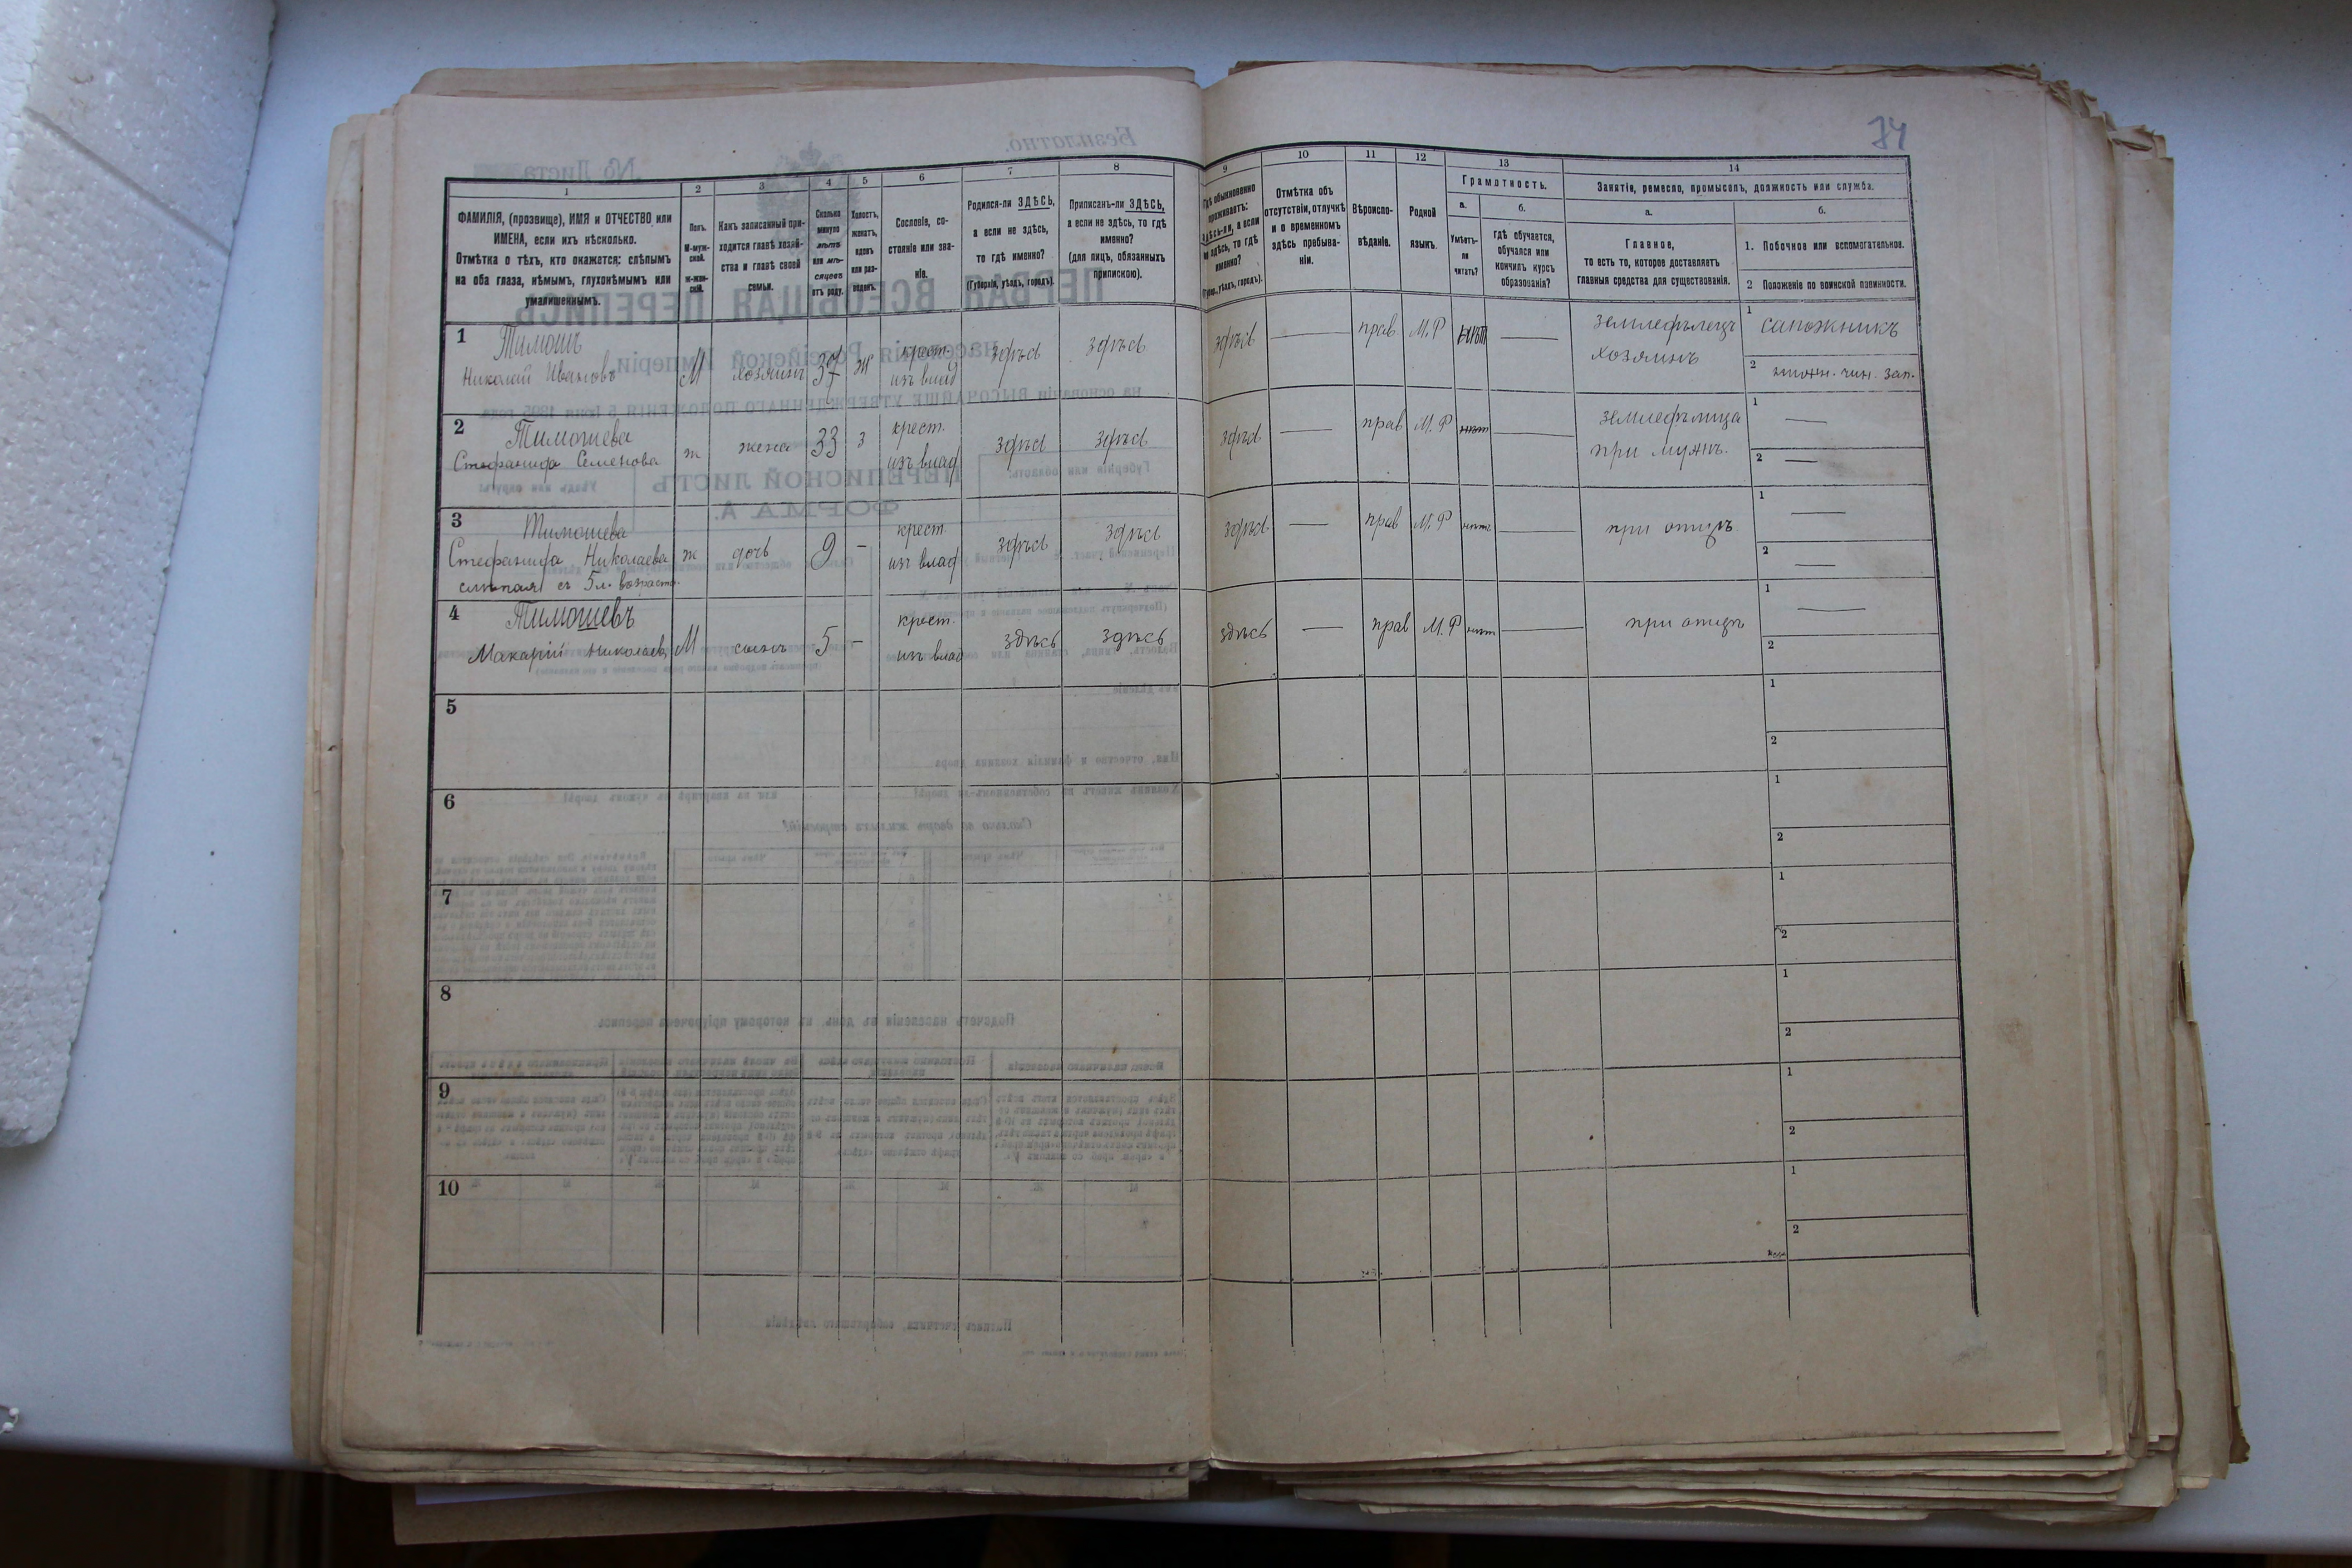 74
1
ФАМИЛІЯ, (прозвище), ИМЯ и ОТЧЕСТВО или
ИМЕНА, если ихъ нѣсколько.
Отмѣтка о тѣхъ, кто окажется: слѣпымъ
на оба глаза, нѣмымъ, глухонѣмымъ или
умалишеннымъ.
2
Полъ.
М-муж-
ской.
Ж-жен-
скій.
3
Какъ записанный при-
ходится главѣ хозяй-
ства и главѣ своей
семьи.
4
Сколько
минуло
лѣтъ
или мѣ-
сяцевъ
отъ роду.
5
Холостъ,
женатъ,
вдовъ
или раз-
веденъ.
6
Сословіе, со-
стояніе или зва-
ніе.
7
Родился-ли ЗДѢСЬ,
а если не здѣсь,
то гдѣ именно?
(Губернія, уѣздъ, городъ).
8
Приписанъ-ли ЗДѢСЬ,
а если не здѣсь, то гдѣ
именно?
(для лицъ, обязанныхъ
припискою).
9
Гдѣ обыкновенно
проживаетъ:
здѣсь-ли, а если
не здѣсь, то гдѣ
именно?
(Губерн., уѣздъ, городъ).
10
Отмѣтка объ
отсутствіи, отлучкѣ
и о временномъ
здѣсь пребыва-
ніи.
11
Вѣроиспо-
вѣданіе.
12
Родной
языкъ.
13
Грамотность.
а.
Умѣетъ-
ли
читать?
б.
гдѣ обучается,
обучался или
кончилъ курсъ
образованія?
14
Занятіе, ремесло, промыселъ, должность или служба.
а.
Главное,
то есть то, которое доставляетъ
главныя средства для существованія.
б.
1. Побочное или вспомогательное.
2 Положеніе по воинской повинности.
1
Тимошъ
Николай Ивановъ
М
хозяинъ
37
ж
крест.
изъ влад
здѣсь
здѣсь
здѣсь
прав
М.Р
нѣтъ
земледѣлецъ
хозяинъ
1 сапожникъ
2
чин. зап.
2
Тимошева
Стефанида Семенова
ж
жена
33
з
крест.
изъ влад
здѣсь
здѣсь
здѣсь
прав
М.Р
нѣт
земледѣлица
при мужѣ.
1
2
3
Тимошева
Стефанида Николаева
слѣпая съ 5 л. возраста.
ж
дочь
9
крест
изъ влад
здѣсь
здѣсь
здѣсь
прав
М.Р
нѣт
при отцѣ
1
2
4
Тимошевъ
Макарій Николаев
М
сынъ
5
крест.
изъ влад
здѣсь
здѣсь
здѣсь
прав
М.Р
нѣт
при отцѣ
1
2
5
1
2
6
1
2
7
1
2
8
1
2
9
1
2
10
1
2